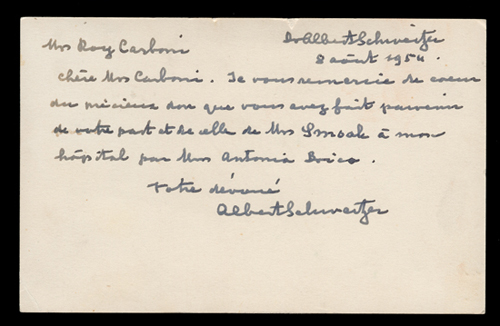 Dr Albert Schweitzer
Mrs Roy Carboni
8 août 1954.
chère Mrs Carboni. Je vous remercie de coeur
du précieux don que vous avez fait parvenir
de votre part et de celle de Mrs Smoak à mon
hôpital par Mrs Antonia Brico.
Votre dévoué
Albert Schweitzer